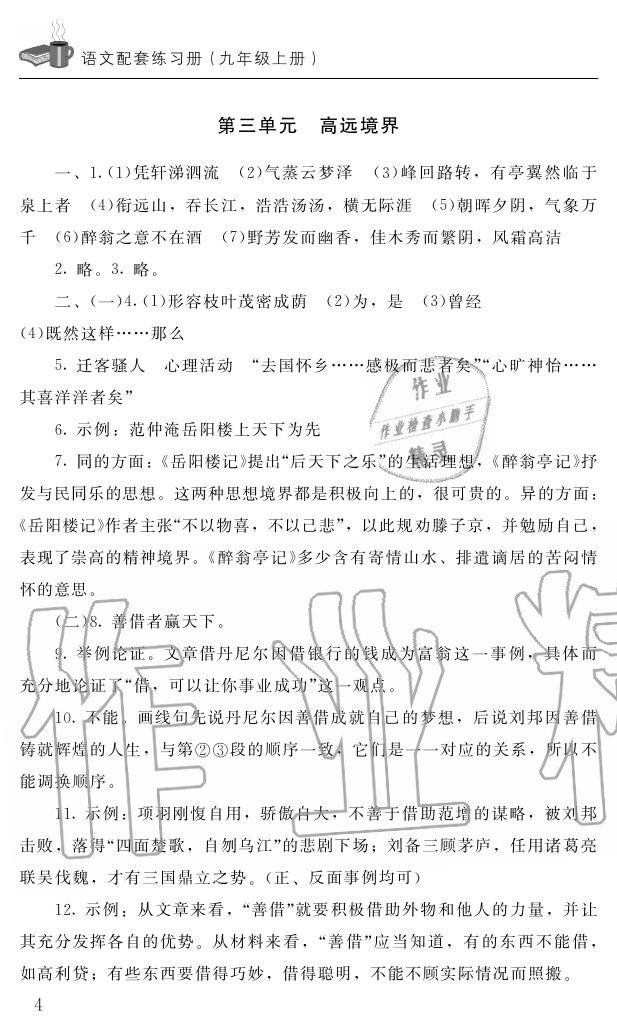 语文配套练习册(九年级上册)
第三单元 高远境界
一、1.(1)凭轩涕泗流 (2)气蒸云梦泽 (3)峰回路转，有亭翼然临于
泉上者 (4)衔远山，吞长江，浩浩汤汤，横无际涯 (5)朝晖夕阴，气象万
千 (6)醉翁之意不在酒 (7)野芳发而幽香，佳木秀而繁阴，风霜高洁
2. 略。3. 略。
二、(一)4.(1)形容枝叶茂密成荫 (2)为，是 (3)曾经
(4)既然这样……那么
5. 迁客骚人 心理活动 “去国怀乡……感极而悲者矣”“心旷神怡……
其喜洋洋者矣”
6. 示例：范仲淹岳阳楼上天下为先
7. 同的方面：《岳阳楼记》提出“后天下之乐”的生活理想，《醉翁亭记》抒
发与民同乐的思想。这两种思想境界都是积极向上的，很可贵的。异的方面：
《岳阳楼记》作者主张“不以物喜，不以己悲”，以此规劝滕子京，并勉励自己，
表现了崇高的精神境界。《醉翁亭记》多少含有寄情山水、排遣谪居的苦闷情
怀的意思。
(二)8. 善借者赢天下。
9. 举例论证。文章借丹尼尔因借银行的钱成为富翁这一事例，具体而
充分地论证了“借，可以让你事业成功”这一观点。
10. 不能。画线句先说丹尼尔因善借成就自己的梦想，后说刘邦因善借
铸就辉煌的人生，与第②③段的顺序一致，它们是一一对应的关系，所以不
能调换顺序。
11. 示例：项羽刚愎自用，骄傲自大，不善于借助范增的谋略，被刘邦
击败，落得“四面楚歌，自刎乌江”的悲剧下场；刘备三顾茅庐，任用诸葛亮
联吴伐魏，才有三国鼎立之势。(正、反面事例均可)
12. 示例：从文章来看，“善借”就要积极借助外物和他人的力量，并让
其充分发挥各自的优势。从材料来看，“善借”应当知道，有的东西不能借，
如高利贷；有些东西要借得巧妙，借得聪明，不能不顾实际情况而照搬。
4
作业
作业检查小助手
精灵
作业精